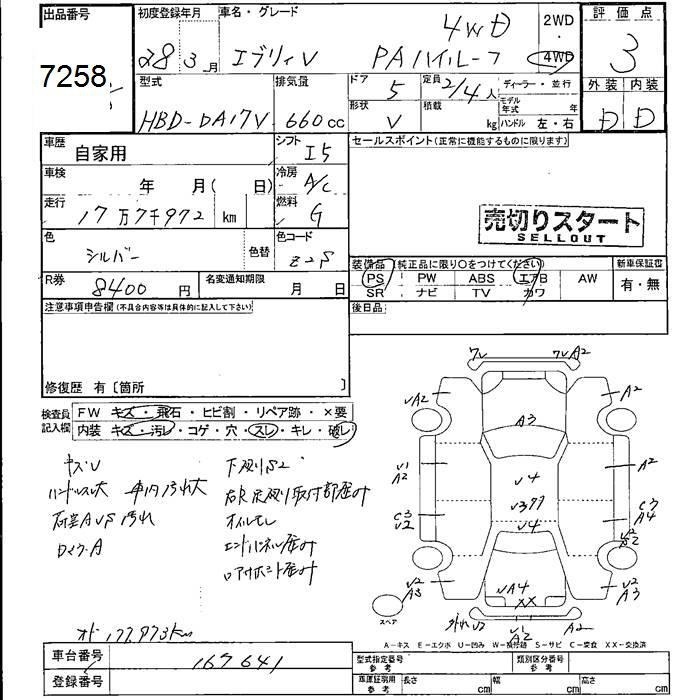 出品番号 初度登録年月 車名・グレード 4WD 2WD 評価点
7258 28 3月 エブリィV PAハイルーフ 4WD 3
型式 排気量 ドア 5 定員 2/4人 ディーラー・並行 外装 内装
HBD-DA17V 660cc 形状 V 積載 kg モデル年式 年 ハンドル 左・右 D D
車歴 自家用 シフト I5 セールスポイント(正常に機能するものに限ります)
車検 年 月( 日) 冷房 A/C
走行 17万7千972 km 燃料 G
売切りスタート
SELLOUT
色 シルバー 色替 色コード Z2S
装備品(純正品に限り〇をつけてください) 新車保証書
PS PW ABS エアB AW 有・無
SR ナビ TV カワ
R券 8400円 名変通知期限 月 日
後日品
注意事項申告欄(不具合内容等は具体的に記入して下さい)
修復歴 有〔箇所 〕
検査員記入欄 FW キズ・飛石・ヒビ割・リペア跡・×要
内装 キズ・汚レ・コゲ・穴・スレ・キレ・破レ
キズU 下廻りS2
ハンドルス大 車内汚れ大
オイルモレ
エンドパネル歪み
ロアサポート歪み
オド177,973km
7U 7UA2
UA2 A2
A3
U1 A2 U4 A2
C3 U2 U4 C3 A4
U2 A2
U2 A3 UA4 XX U2 A3
U2 U1 A2 A2
スペア
A-キズ E-エクボ U-凹み W-補修跡 S-サビ C-腐食 XX-交換済
車台番号 167641
登録番号
型式指定番号 参考 類別区分番号 参考
車庫証明用 参考 長さ cm 幅 cm 高さ cm